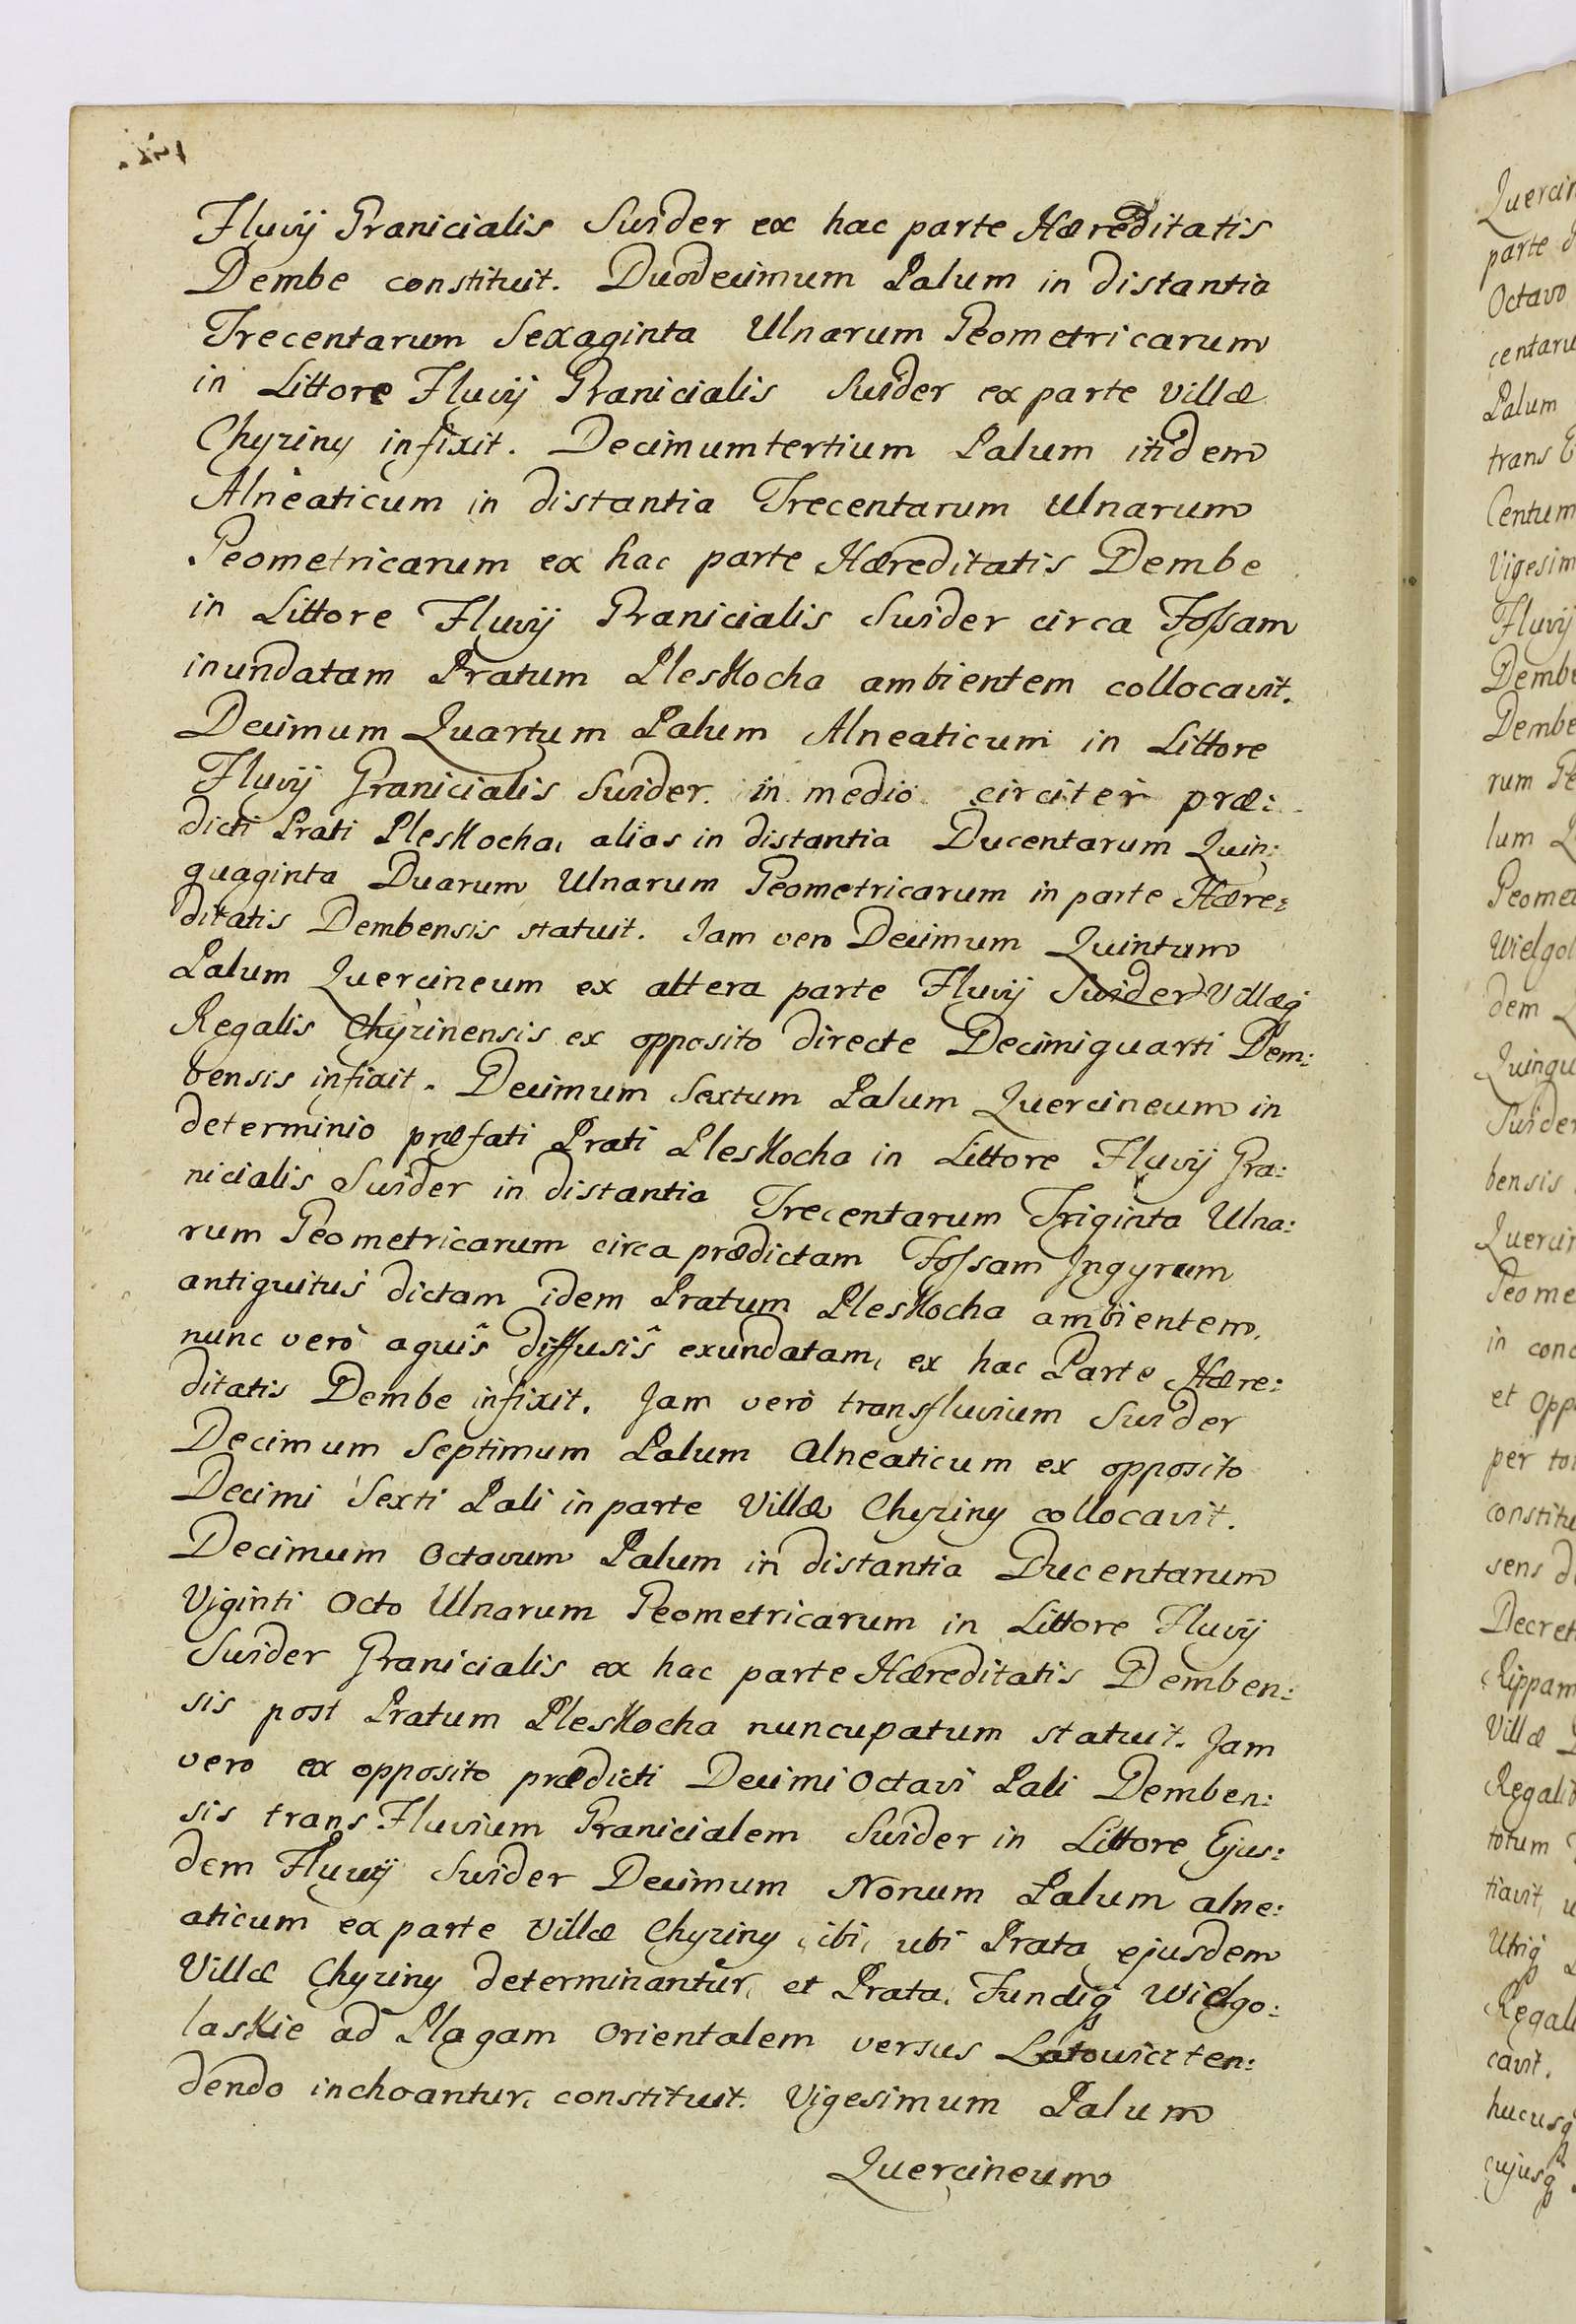 Fluvij Granicialis Swider ex hac parte Hæreditatis
Dembe constituit. Duodecimum Palum in distantia
Trecentarum Sexaginta Ulnarum Geometricarum
in Littore Fluvij Granicialis Swider ex parte Villæ
Chyziny infixit. Decimumtertium Palum itidem
Alneaticum in distantia Trecentarum Ulnarum
Geometricarum ex hac parte Hæreditatis Dembe
in Littore Fluvij Granicialis Swider circa Fossam
inundatam Pratum Pleskocha ambientem collocavit.
Decimum Quartum Palum Alneaticum in Littore
Fluvij Granicialis Swider in medio circiter præ:
dicti Prati Pleskocha, alias in distantia Ducentarum Quin:
quaginta Duarum Ulnarum Geometricarum in parte Hære:
ditatis Dembensis statuit. Jam vero Decimum Quintum
Palum Quercineum ex altera parte Fluvij Swider Villæq
Regalis Chyzinensis ex opposito directe Decimiquarti Dem:
bensis infixit. Decimum Sextum Palum Quercineum in
determinio præfati Prati Pleskocha in Littore Fluvij Gra:
nicialis Swider in distantia Trecentarum Triginta Ulna:
rum Geometricarum circa prædictam Fossam Jngyrum
antiquitus dictam idem Pratum Pleskocha ambientem,
nunc verò aquîs diffusîs exundatam, ex hac Parte Hære:
ditatis Dembe infixit. Jam verò transfluvium Swider
Decimum Septimum Palum Alneaticum ex opposito
Decimi Sexti Pali in parte Villæ Chyziny collocavit.
Decimum Octavum Palum in distantia Ducentarum
Viginti Octo Ulnarum Geometricarum in Littore Fluvij
Swider Granicialis ex hac parte Hæreditatis Demben:
sis post Pratum Pleskocha nuncupatum statuit. Jam
vero ex opposito prædicti Decimi Octavi Pali Demben:
sis trans Fluvium Granicialem Swider in Littore Ejus:
dem Fluvij Swider Decimum Nonum Palum alne:
aticum ex parte Villæ Chyziny, ibi, ubi Prata ejusdem
Villæ Chyziny determinantur, et Prata, Fundiq Wielgo:
laskie ad Plagam Orientalem versus Latowicz ten:
dendo inchoantur, constituit. Vigesimum Palum
Quercineum